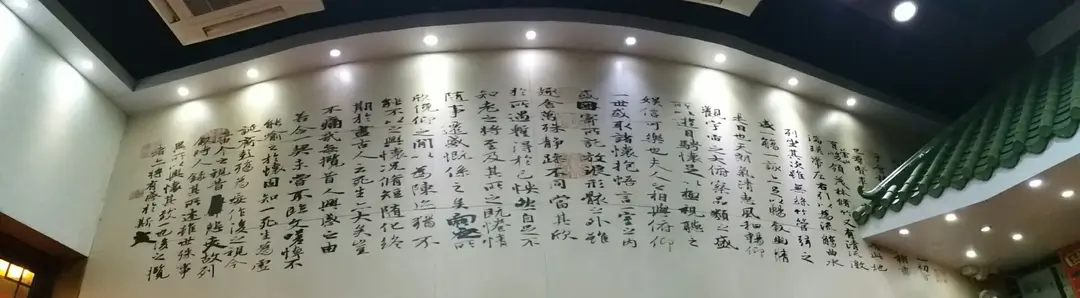 此地
有崇山峻領茂林脩竹又有清流激
湍暎帶左右引以為流觴曲水
列坐其次雖無絲竹管弦之
盛一觴一詠亦足以暢敘幽情
是日也天朗氣清惠風和暢仰
觀宇宙之大俯察品類之盛
所以遊目騁懷足以極視聽之
娛信可樂也夫人之相與俯仰
一世或取諸懷抱悟言一室之內
或因寄所託放浪形骸之外雖
趣舍萬殊靜躁不同當其欣
於所遇蹔得於己怏然自足不
知老之將至及其所之既惓情
隨事遷感慨係之矣向之所
欣俛仰之閒以為陳迹猶不
能不以之興懷況脩短隨化終
期於盡古人云死生亦大矣豈
不痛哉每攬昔人興感之由
若合一契未嘗不臨文嗟悼不
能喻之於懷固知一死生為虛
誕齊彭殤為妄作後之視今
亦由今之視昔悲夫故列
敘時人錄其所述雖世殊事
異所以興懷其致一也後之攬
者亦將有感於斯文